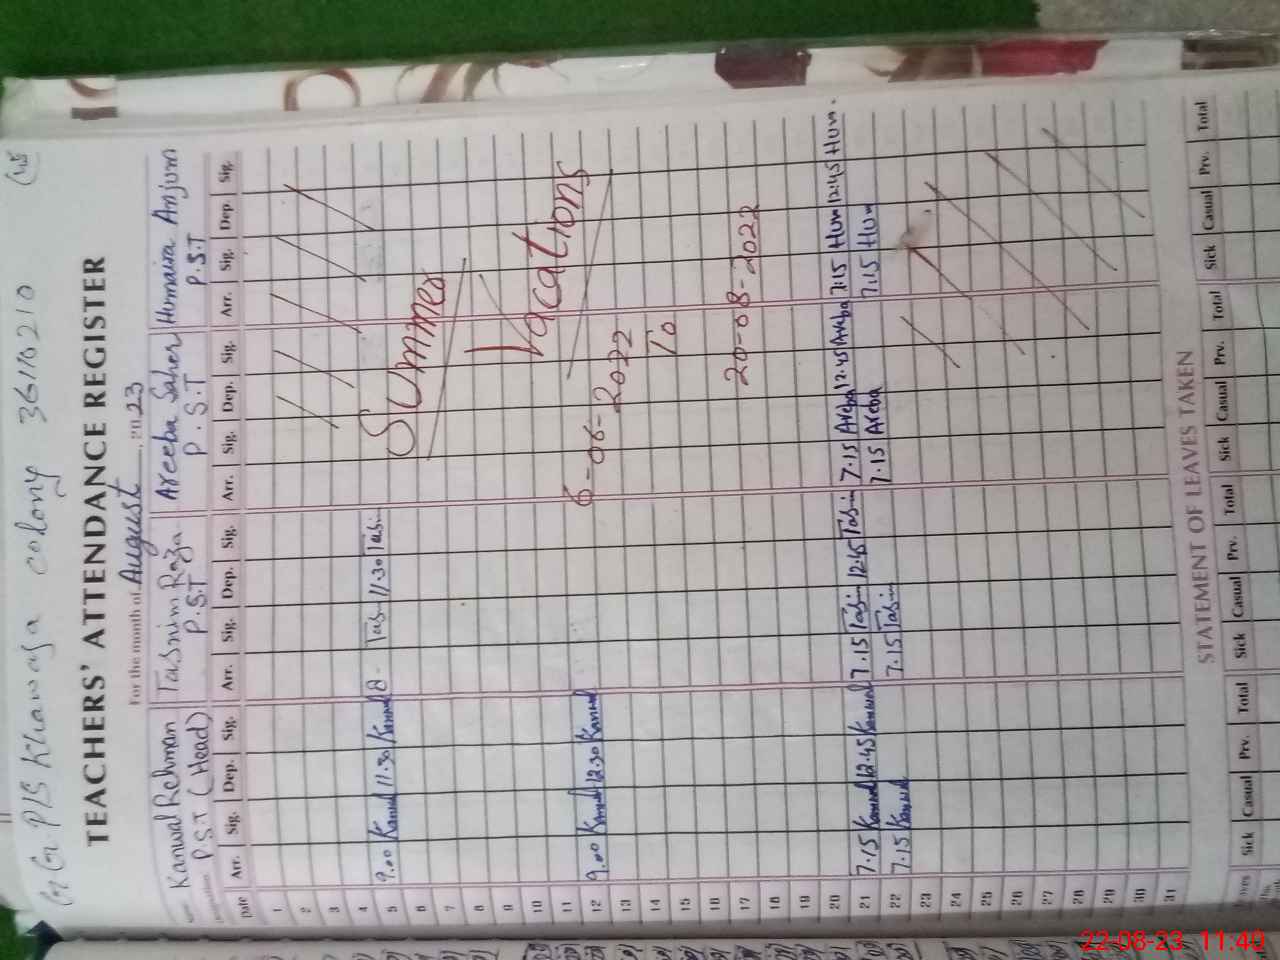 G.P/S Khawaja colony 36110210
TEACHERS' ATTENDANCE REGISTER
For the month of August 2023
Kanwal Rehman Tasnim Raza Areeba Saher Humaira Anjum
P.S.T (Head) P.S.T P.S.T P.S.T
Date Arr. Sig. Dep. Sig. Arr. Sig. Dep. Sig. Arr. Sig. Dep. Sig. Arr. Sig. Dep. Sig.
1
2
3
4
5 9.00 Kanwal 11.30 Kanwal 8- Tas.. 11.30 Tas..
6
7
8
9
10
11
12 9.00 Kanwal 12.30 Kanwal
13
14
15
16
17
18
19
20
21 7.15 Kanwal 12.45 Kanwal 7.15 Tas.. 12.45 Tas.. 7.15 Areba 12.45 Areba 7:15 Hum 12:45 Hum.
22 7.15 Kanwal 7.15 Tas.. 7.15 Areba 7.15 Hum
23
24
25
26
27
28
29
30
31
Summer
Vacations
6-06-2022
To
20-08-2022
STATEMENT OF LEAVES TAKEN
Sick Casual Prv. Total Sick Casual Prv. Total Sick Casual Prv. Total Sick Casual Prv. Total
22-08-23 11:40